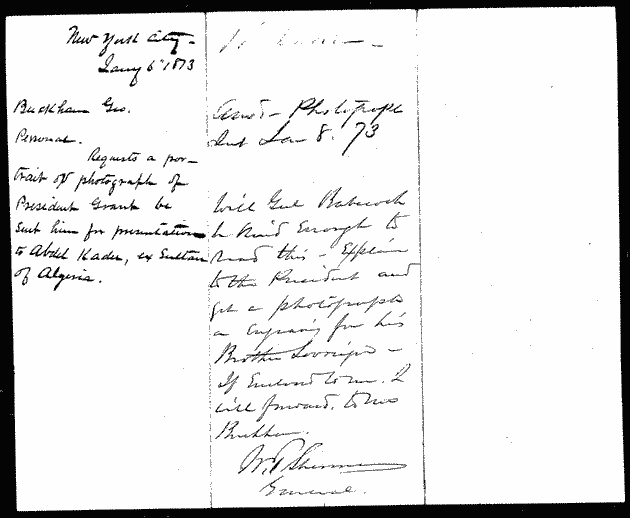 New York City -
Jany 6" 1873
Buckham Geo.
Personal.
Requests a por-
trait or photograph of
President Grant be
sent him for presentation
to Abdel Kader, ex Sultan
of Algeria.
Photograph
Jan 8. 73
Will Genl Babcock
be kind enough to
read this - Explain
to the President and
get a photograph
or engraving for his
Brother Sovereign -
If Enclosed to me. I
will forward. to Mr
Buckham.
W. T. Sherman
General.